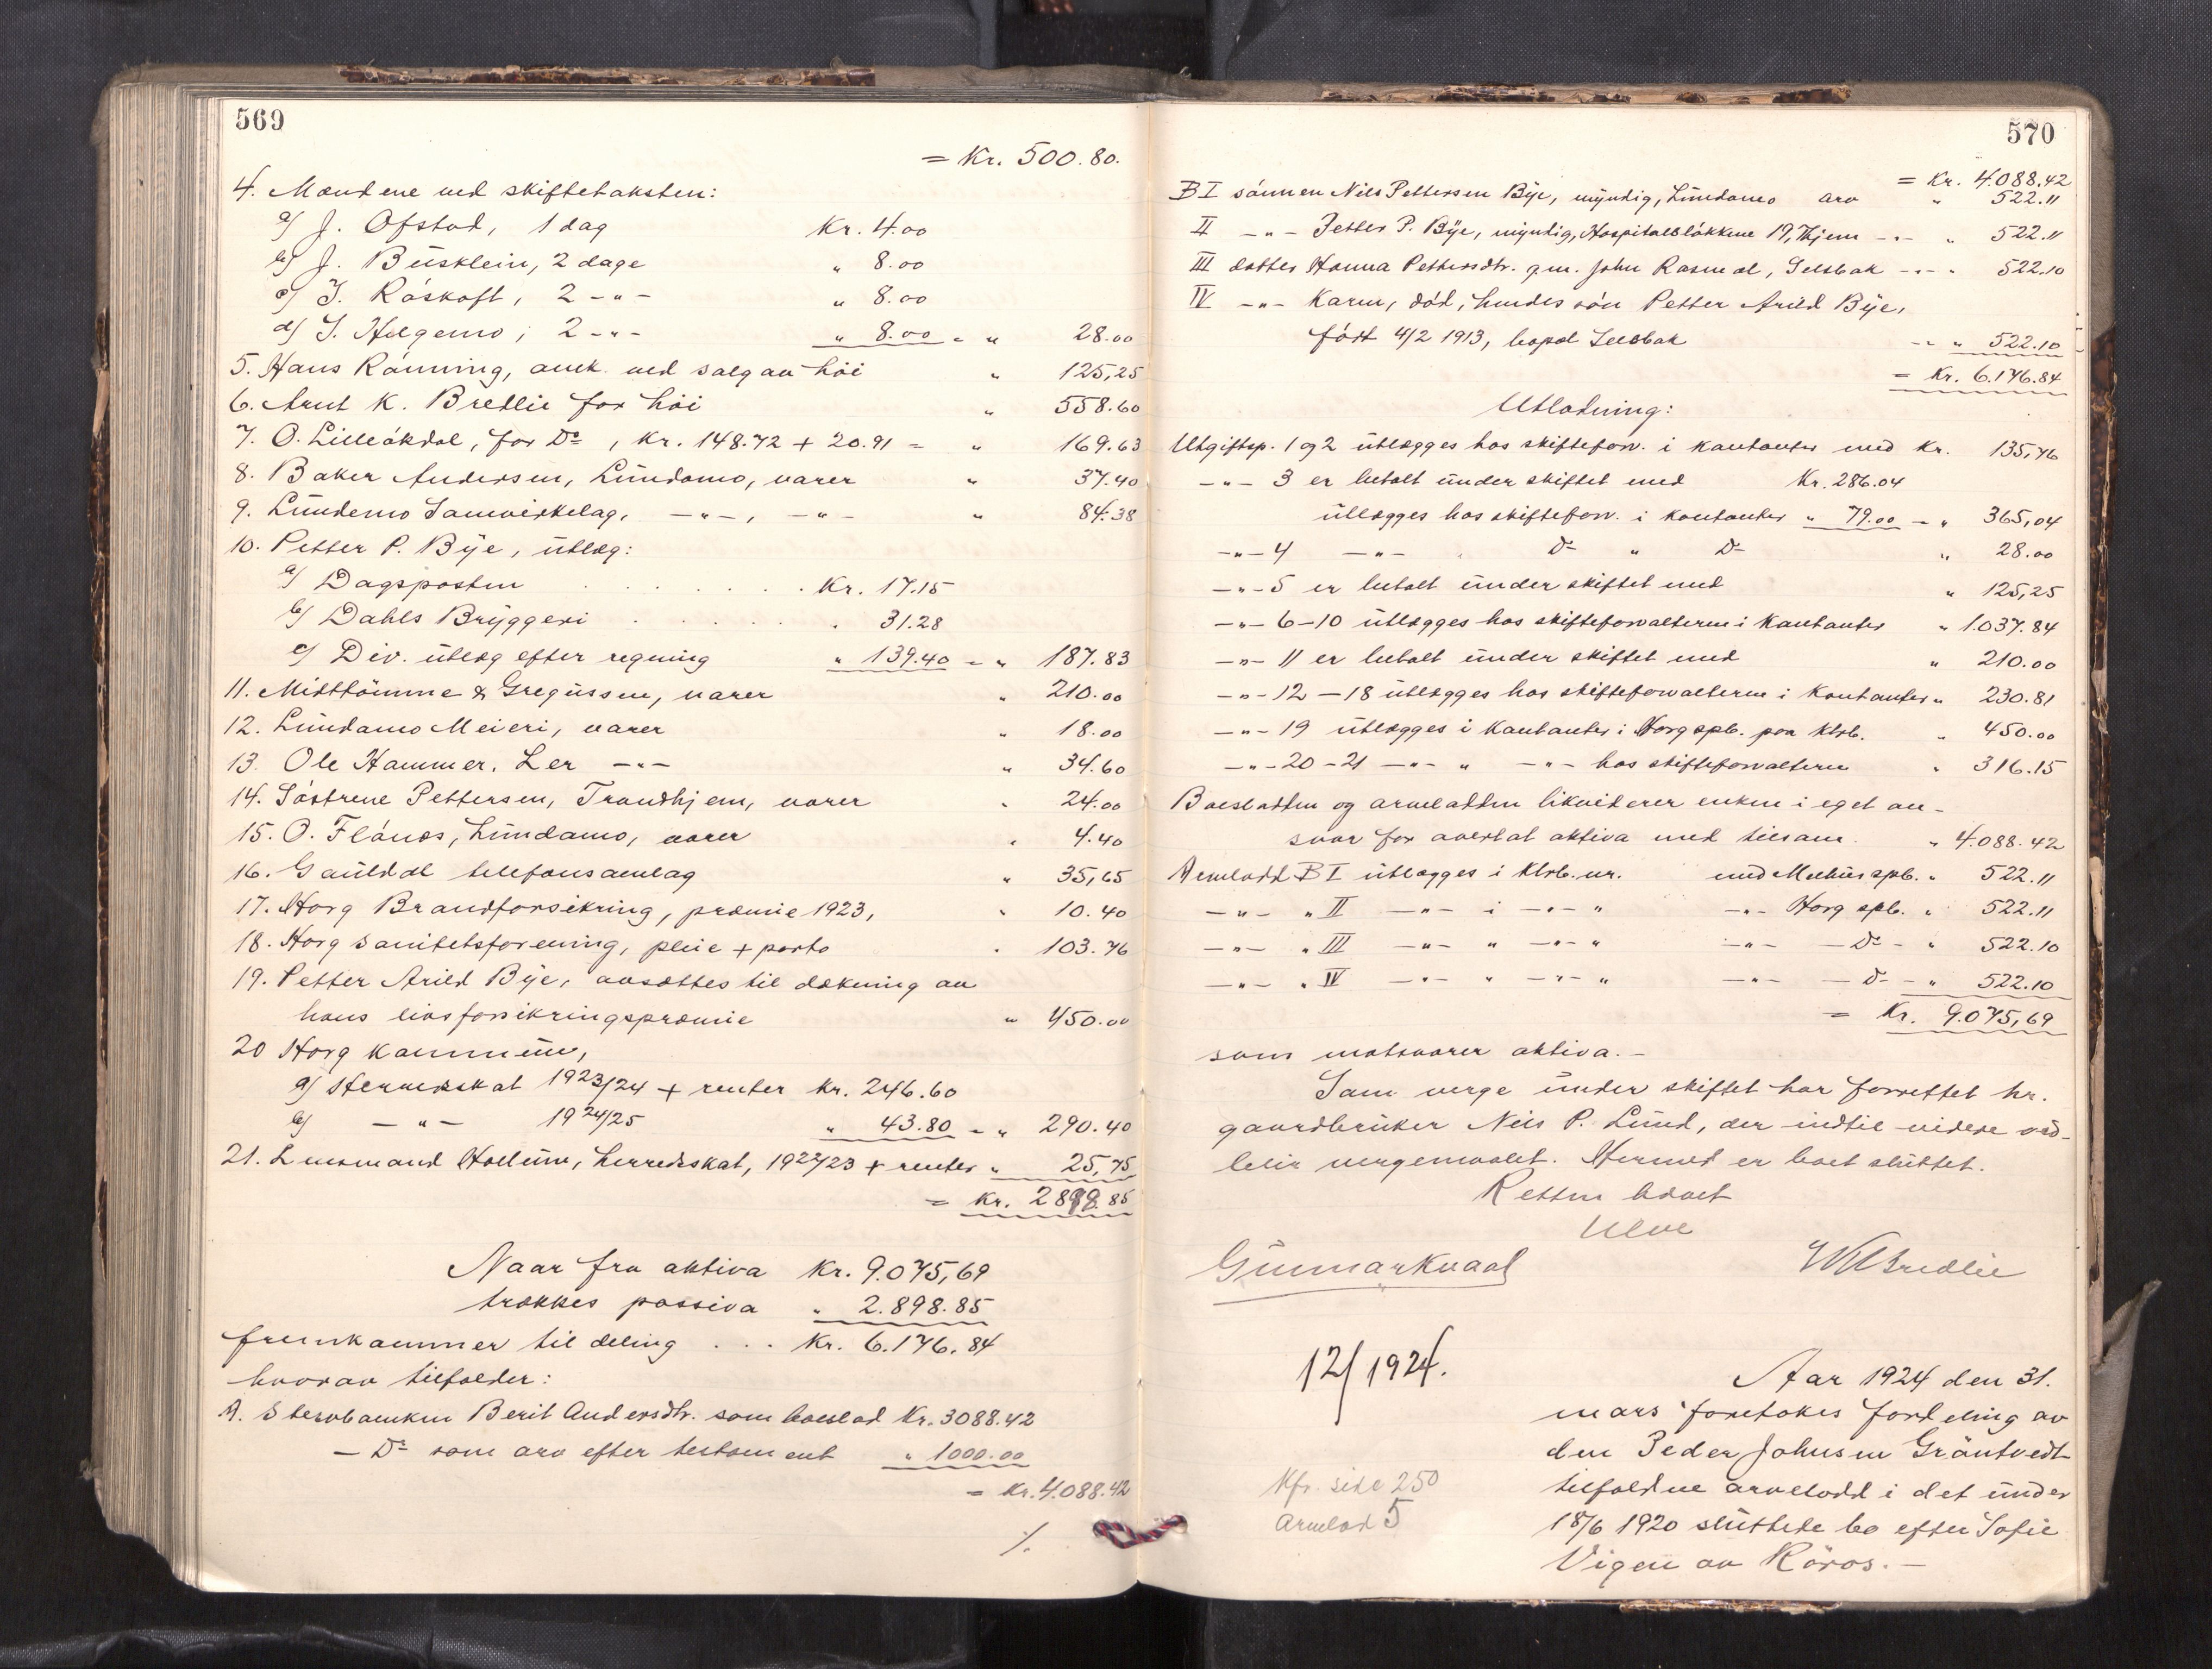 569
= Kr. 500.80.
4. Mændene ved skiftetaksten:
a) J. Ofstad, 1 dag Kr. 4.00
b) J. Busklein, 2 dage " 8.00
c) J. Röskaft, 2 -"- " 8.00
d) J. Helgemo, 2 -"- " 8.00 = " 28.00
5. Hans Rönning, auk. ved salg av höi " 125,25
6. Arnt K. Bredlie for höi " 558.60
7. O. Lilleökdal, for Do, Kr. 148.72 + 20.91 = " 169.63
8. Baker Andersen, Lundamo, varer " 37.40
9. Lundemo Samvirkelag, -"-, -"- " 84.38
10. Petter P. Bye, utlæg:
a) Dagsposten . . . . . . Kr. 17.15
b) Dahls Bryggeri . . . . . " 31.28
c) Div. utlæg efter regning " 139.40 = " 187.83
11. Midttömme & Gregussen, varer " 210.00
12. Lundamo Meieri, varer " 18.00
13. Ole Hammer, Ler -"- " 34.60
14. Söstrene Pettersen, Trondhjem, varer " 24.00
15. O. Flånes, Lundamo, varer " 4.40
16. Gauldal telefonsamlag " 35,65
17. Horg Brandforsikring, præmie 1923, " 10.40
18. Horg Sanitetsforening, pleie + porto " 103.76
19. Petter Arild Bye, avsættes til dækning av
hans livsforsikringspræmie " 450.00
20 Horg kommune,
a) Herredsskat 1923/24 + renter Kr. 246.60
b) -"- 1924/25 " 43.80 = " 290.40
21. Lensmand Hollum, herredsskat, 1922/23 + renter " 25,75
= Kr. 2898.85
Naar fra aktiva Kr. 9.075,69
trækkes passiva " 2.898.85
fremkommer til deling . . . Kr. 6.176.84
hvorav tilfalder:
A. Stervboenken Berit Andersdtr. som boeslod Kr. 3088.42
- Do som arv efter testament " 1000.00
= Kr. 4.088.42
./.
570
= Kr. 4.088.42
B I sönnen Nils Pettersen Bye, myndig, Lundamo arv " 522.11
II -"- Petter P. Bye, myndig, Hospitalslökkene 17, Thjem -"- " 522.11
III datter Hanna Pettersdtr. gm. John Rasmol, Selsbak -"- " 522.10
IV -"- Karen, död, hendes sön Petter Arild Bye,
födt 4/2 1913, bopæl Selsbak -"- " 522.10
= Kr. 6.176.84
Utlodning:
Utgiftsp. 1 og 2 utlægges hos skifteforv. i kontanter med Kr. 135,76
-"- 3 er betalt under skiftet med Kr. 286.04
utlægges hos skifteforv. i kontanter " 79.00 = " 365,04
-"- 4 -"- " Do " Do " 28.00
-"- 5 er betalt under skiftet med " 125,25
-"- 6-10 utlægges hos skifteforvalteren i kontanter " 1.037.84
-"- 11 er betalt under skiftet med " 210.00
-"- 12-18 utlægges hos skifteforvalteren i kontanter " 230.81
-"- 19 utlægges i kontanter i Horg spb. paa ktrb. " 450.00
-"- 20-21 -"- " -"- hos skifteforvalteren " 316.15
Boeslodden og arvelodden likviderer enken i eget an-
svar for overtat aktiva med tilsam. " 4.088.42
Arvelodd B I utlægges i ktrb. nr. med Melhus spb. " 522.11
-"- " II -"- i -"- " -"- Horg spb. " 522.11
-"- " III -"- " -"- " -"- -Do- " 522.10
-"- " IV -"- " -"- " -"- -Do- " 522.10
= Kr. 9.075,69
som motsvarer aktiva.-
Som verge under skiftet har forrettet hr.
gaardbruker Nils P. Lund, der indtil videre ved-
blir vergemaalet. Hermed er boet sluttet.
Retten hævet
Ulve
Gunnar Kvaal
12/1924.
Kfr. side 250
Arvelod 5
Aar 1924 den 31.
mars foretokes fordeling av
den Peder Johnsen Gräntvedt
tilfaldne arvelodd i det under
18/6 1920 sluttede bo efter Sofie
Vigen av Röros.-